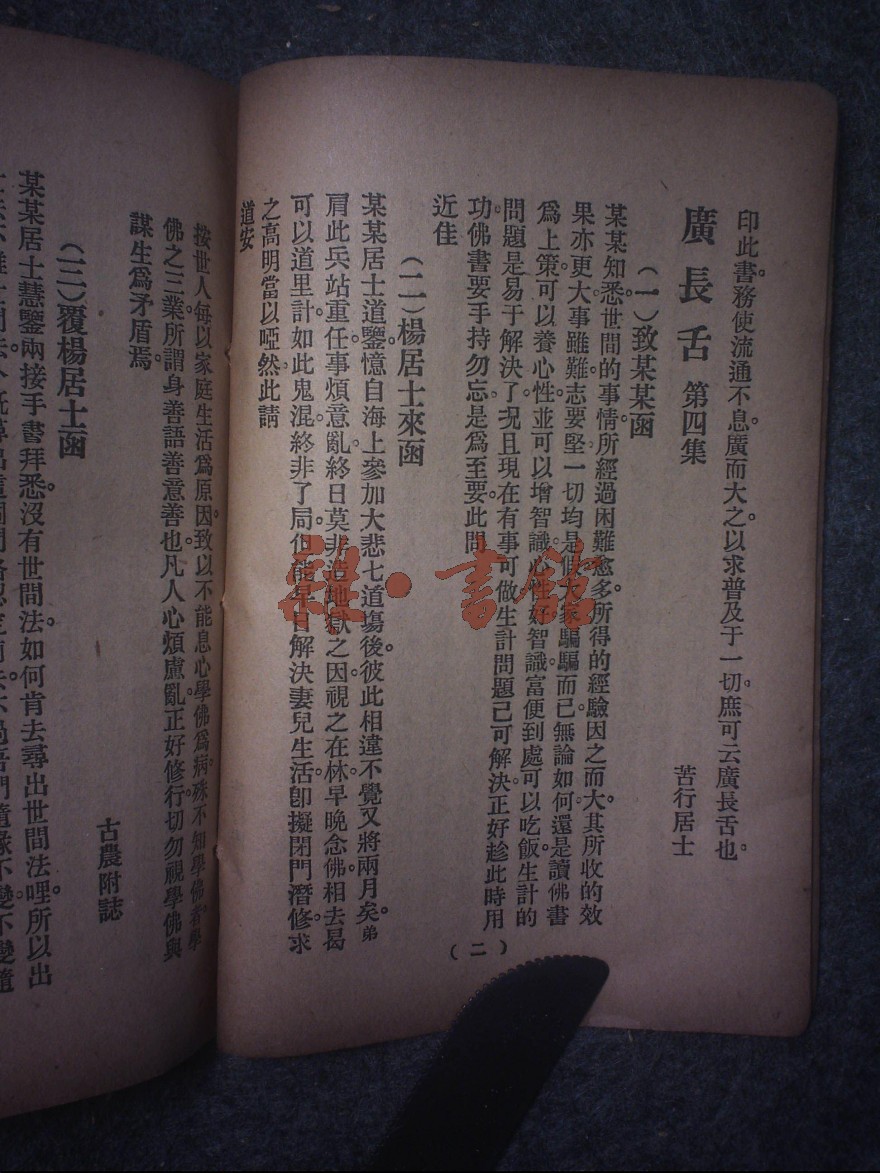 印此書。務使流通不息。廣而大之。以求普及于一切。庶可云廣長舌也。
廣長舌 第四集 苦行居士
(一)致某某函
某某知悉世間的事情。所經過困難愈多。所得的經驗因之而大。其所收的效
果亦更大。事雖難。志要堅。一切均是假。大家騙騙而已。無論如何。還是讀佛書
爲上策。可以養心性。並可以增智識。心性好。智識富。便到處可以吃飯。生計的
問題。是易于解決了。況且現在有事可做。生計問題已可解決。正好趁此時用
功。佛書要手持勿忘。是爲至要。此問
近佳
(二)楊居士來函
某某居士道鑒。憶自海上參加大悲七道塲後。彼此相違。不覺又將兩月矣。弟
肩此兵站重任。事煩意亂。終日莫非造地獄之因。視之在林。早晚念佛。相去曷
可以道里計。如此鬼混。終非了局。但能早日解決妻兒生活。卽擬閉門潛修。求
之高明。當以啞然。此請
道安
按世人每以家庭生活爲原因。致以不能息心學佛爲病。殊不知學佛者。學
佛之三業。所謂身善語善意善也。凡人心煩慮亂。正好修行。切勿視學佛與
謀生爲矛盾焉。
古農附誌
(三)覆楊居士函
某某居士慧鑒。兩接手書拜悉。沒有世間法。如何肯去尋出世間法哩。所以出
(二)
雜·書館